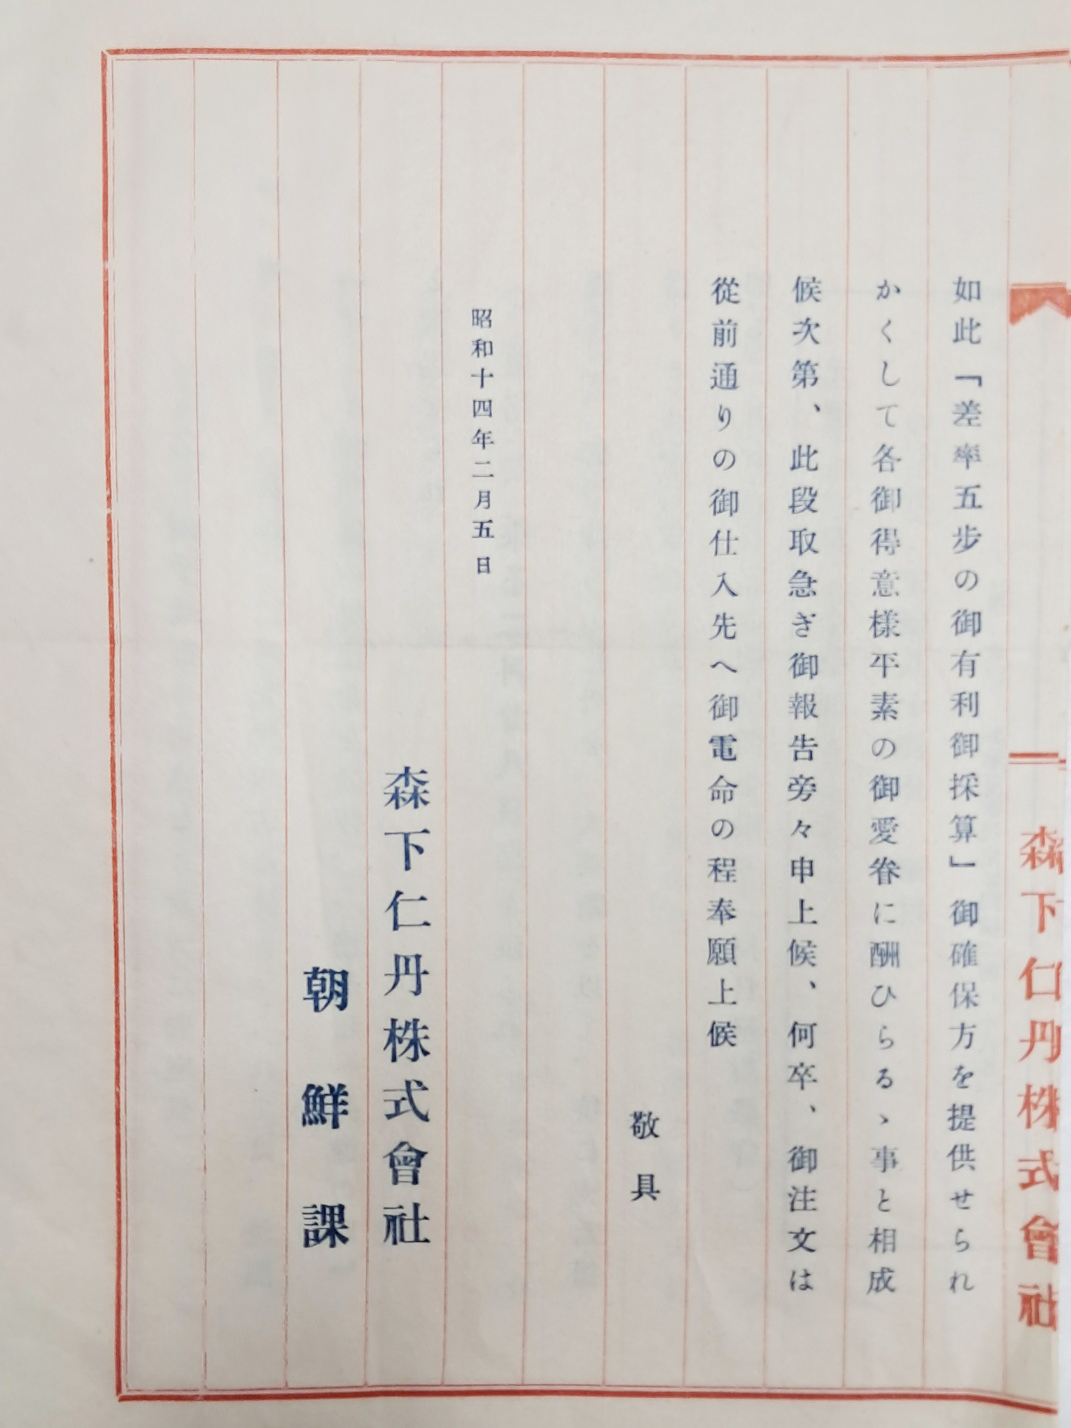 森下仁丹株式會社
如此「差率五步の御有利御採算」御確保方を提供せられ
かくして各御得意樣平素の御愛眷に酬ひらるゝ事と相成
候次第、此段取急ぎ御報告旁々申上候、何卒、御注文は
從前通りの御仕入先へ御電命の程奉願上候
敬具
昭和十四年二月五日
森下仁丹株式會社
朝鮮課